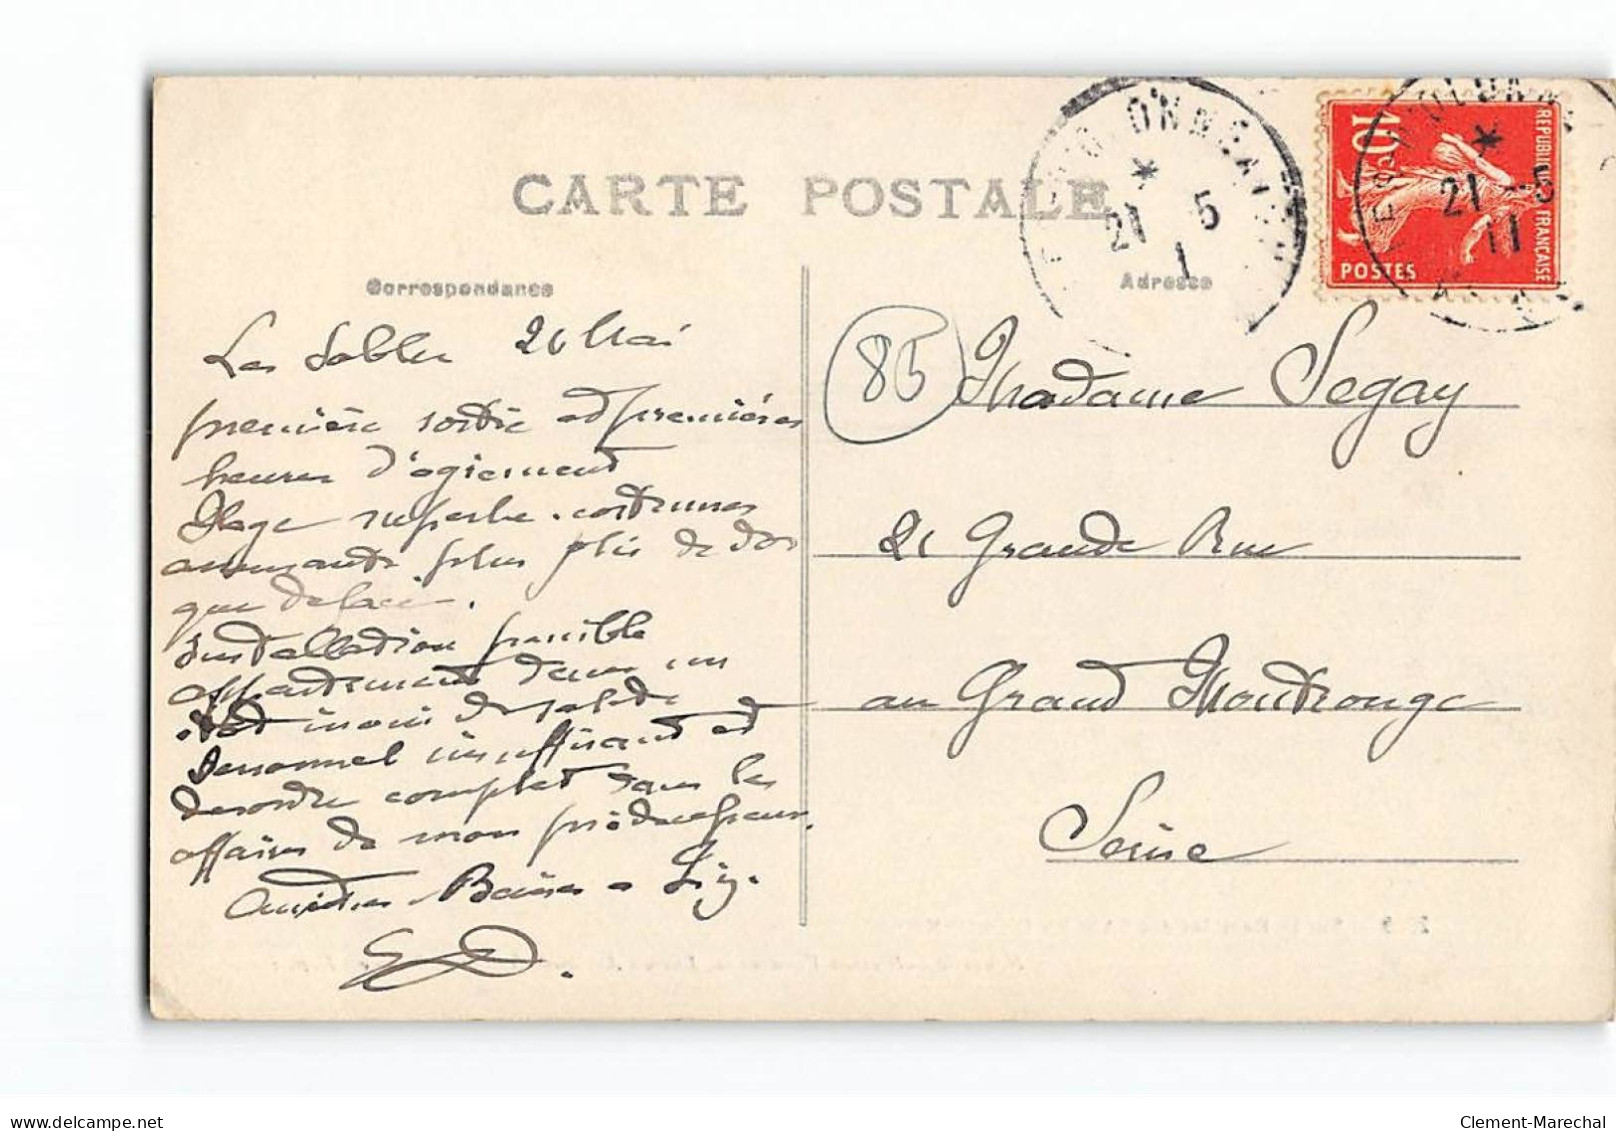 CARTE POSTALE
Correspondance
Adresse
REPUBLIQUE FRANCAISE
10c
POSTES
21 5
1
21 - 5
11
85
Les Sables 20 Mai
première sortie et premières
heures d'agrément
Plage superbe. costumes
amusants plus plis de dos
que de face.
Installation pénible
appartement dans un
état inoui de saleté
personnel insuffisant et
desordre complet dans les
affaires de mon prédécesseur.
Amitiés Baisers a
Madame Segay
21 Grande Rue
au Grand Montrouge
Seine
www.delcampe.net
Clement-Marechal